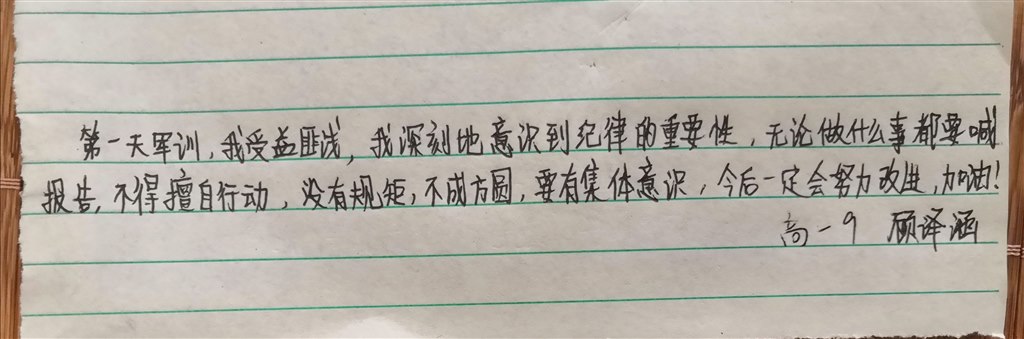 第一天军训，我受益匪浅，我深刻地意识到纪律的重要性，无论做什么事都要喊
报告，不得擅自行动，没有规矩，不成方圆，要有集体意识，今后一定会努力改进，加油！
高一9 顾译涵